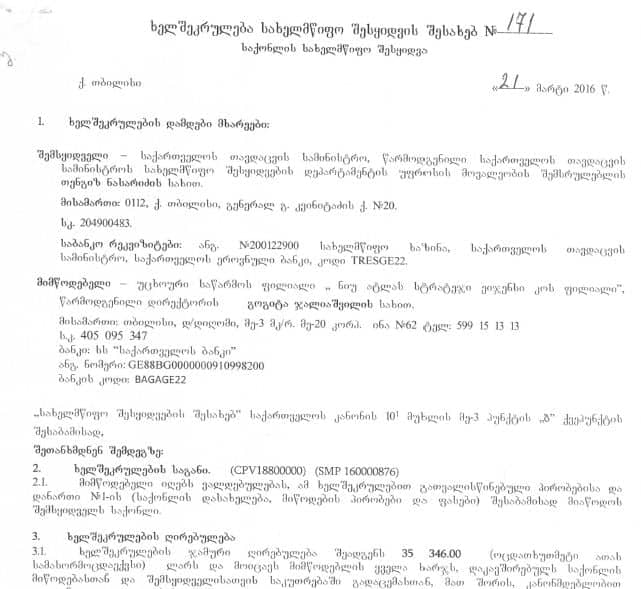 ხელშეკრულება სახელმწიფო შესყიდვის შესახებ № 171
საქონლის სახელმწიფო შესყიდვა
ქ. თბილისი
«21» მარტი 2016 წ.
1. ხელშეკრულების დამდები მხარეები:
შემსყიდველი – საქართველოს თავდაცვის სამინისტრო, წარმოდგენილი საქართველოს თავდაცვის
სამინისტროს სახელმწიფო შესყიდვების დეპარტამენტის უფროსის მოვალეობის შემსრულებლის
თენგიზ ნასარიძის სახით.
მისამართი: 0112, ქ. თბილისი, გენერალ გ. კვინიტაძის ქ. №20.
ს.კ. 204900483.
საბანკო რეკვიზიტები: ანგ. №200122900 სახელმწიფო ხაზინა, საქართველოს თავდაცვის
სამინისტრო, საქართველოს ეროვნული ბანკი, კოდი TRESGE22.
მიმწოდებელი – უცხოური საწარმოს ფილიალი „ ნიუ ატლას სტრატეჯი ეიჯენსი კოს ფილიალი”,
წარმოდგენილი დირექტორის გოგიტა ჯალიაშვილის სახით.
მისამართი: თბილისი, დ/დიღომი, მე-3 მკ/რ. მე-20 კორპ. ინა №62 ტელ: 599 15 13 13
ს.კ. 405 095 347
ბანკი: სს “საქართველოს ბანკი”
ანგ. ნომერი: GE88BG0000000910998200
ბანკის კოდი: BAGAGE22
„სახელმწიფო შესყიდვების შესახებ” საქართველოს კანონის 10¹ მუხლის მე-3 პუნქტის „ბ” ქვეპუნქტის
შესაბამისად,
შეთანხმდნენ შემდეგზე:
2. ხელშეკრულების საგანი. (CPV18800000) (SMP 160000876)
2.1. მიმწოდებელი იღებს ვალდებულებას, ამ ხელშეკრულებით გათვალისწინებული პირობებისა და
დანართი №1-ის (საქონლის დასახელება, მიწოდების პირობები და ფასები) შესაბამისად მიაწოდოს
შემსყიდველს საქონლი.
3. ხელშეკრულების ღირებულება
3.1. ხელშეკრულების ჯამური ღირებულება შეადგენს 35 346.00 (ოცდათხუთმეტი ათას
სამასორმოცდაექვსი) ლარს და მოიცავს მიმწოდებლის ყველა ხარჯს, დაკავშირებულს საქონლის
მიწოდებასთან და შემსყიდველისათვის საკუთრებაში გადაცემასთან, მათ შორის, კანონმდებლობით